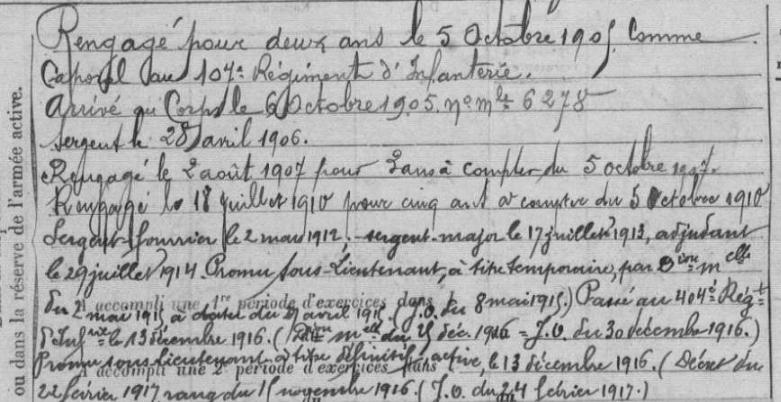 Rengagé pour deux ans le 5 Octobre 1905 Comme
Caporal au 104e Régiment d'Infanterie.
Arrivé au Corps le 6 Octobre 1905. no mle 6278
Sergent le 28 avril 1906.
Rengagé le 2 août 1907 pour 3 ans à compter du 5 octobre 1907.
Rengagé le 18 juillet 1910 pour cinq ans à compter du 5 Octobre 1910
Sergent-fourrier le 2 mai 1912, sergent-major le 17 juillet 1913, adjudant
le 29 juillet 1914. Promu sous-Lieutenant, à titre temporaire, par Don melle
du 2 mai 1915 à dater du avril 1915 (J.O. du 8 mai 1915.) Passé au 404e Régt
A accompli une 1re période d'exercices dans
d'Infrie le 13 décembre 1916. (Don melle du 25 déc. 1916 = J.O. du 30 décembre 1916.)
Promu sous-lieutenant à titre définitif, active, le 13 décembre 1916. (Décret du
A accompli une 2e période d'exercices dans
22 février 1917 rang du 15 novembre 1916. (J.O. du 24 février 1917.)
ou dans la réserve de l'armée active.